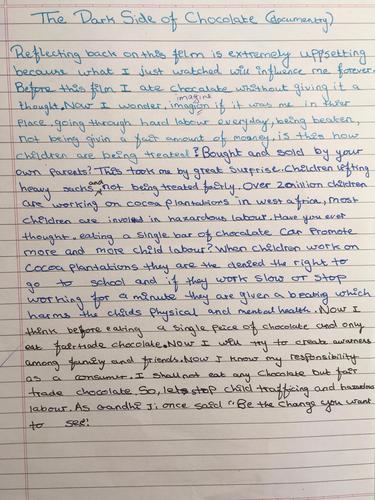 The Dark Side of Chocolate (documentry)
Reflecting back on this film is extremely uppsetting
because what I just watched will influence me forever.
Before this film I ate chocolate without giving it a
thought. Now I wonder, imagion if it was me in their
imagine
place, going through hard labour everyday, being beaten,
not being givin a fair amount of money, is this how
children are being treated? Bought and sold by your
own parents? This took me by great surprise. Children lifting
heavy sacks and not being treated fairly. Over 2 million children
are working on cocoa plantations in west africa, most
children are involed in hazardous labour. Have you ever
thought, eating a single bar of chocolate can promote
more and more child labour? When children work on
cocoa plantations they are the denied the right to
go to school and if they work slow or stop
working for a minute they are given a beating which
harms the childs physical and mental health. Now I
think before eating a single peice of chocolate and only
eat fairtrade chocolate. Now I will try to create awarness
among family and friends. Now I know my responsibility
as a consumer. I shall not eat any chocolate but fair
trade chocolate. So, lets stop child trafficing and hazardous
labour. As Gandhi Ji once said "Be the change you want
to see".